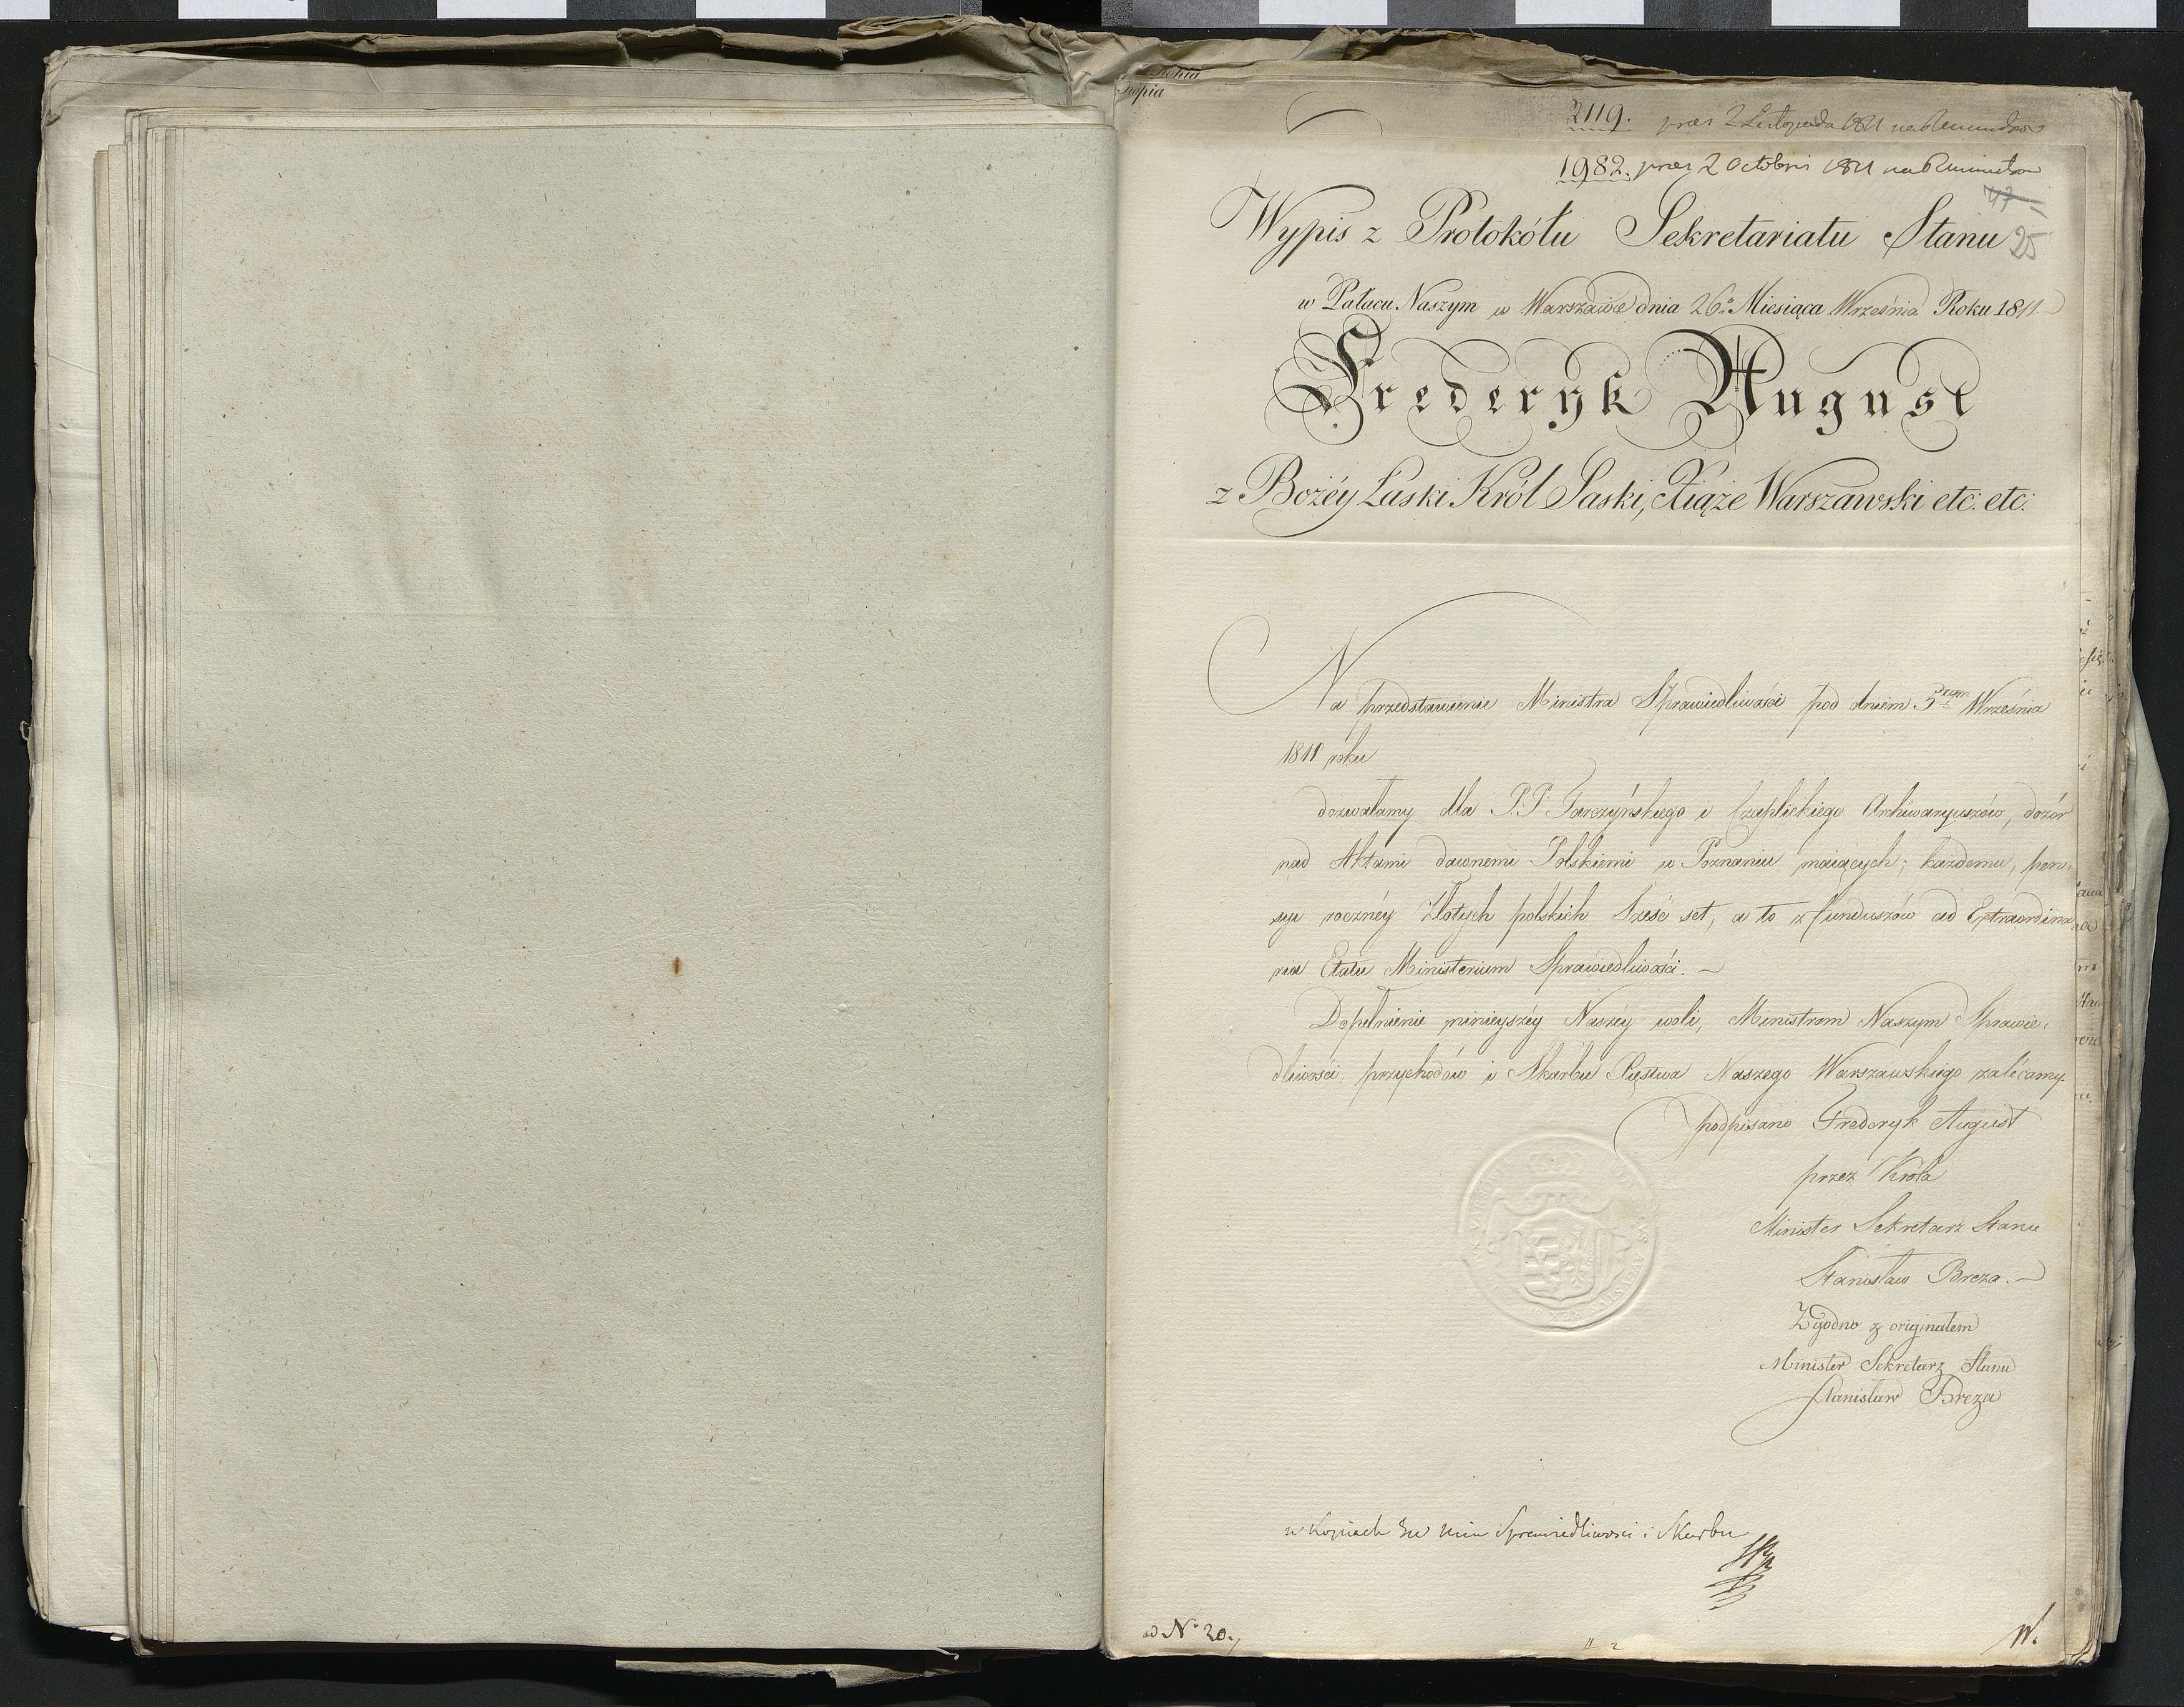 Kopia
Kopia
2119. prez 2 Listopada 1811
1982. prez 2 Octobris 1811
47
25
Wypis z Protokółu Sekretariatu Stanu
w Pałacu Naszym w Warszawie dnia 26º Miesiąca Września Roku 1811
Frederyk August
z Bożéy Łaski Król Saski, Xiąże Warszawski etc: etc:
Na przedstawienie Ministra Sprawiedliwości pod dniem Września
1811 roku
dozwalamy dla P.P. Tarczyńskiego i Czaplickiego Archiwaryuszów, dozór
nad Aktami dawnemi Polskiemi w Poznaniu maiących; każdemu, pen-
syi rocznéy Złotych polskich Sześć set, a to z funduszów ad Extraordina-
ria Etatu Ministerium Sprawiedliwości. ~
Dopełnienie ninieyszéy Naszéy woli, Ministrom Naszym Sprawie-
dliwości, przychodów i Skarbu Xięstwa Naszego Warszawskiego zalécamy.
podpisano Frederyk August
przez Króla
Minister Sekretarz Stanu
Stanisław Breza. ~
Zgodno z originałem
Minister Sekretarz Stanu
Stanisław Breza
w Kopiach do Min Sprawiedliwosci i Skarbu
ad Nº 20.
W.